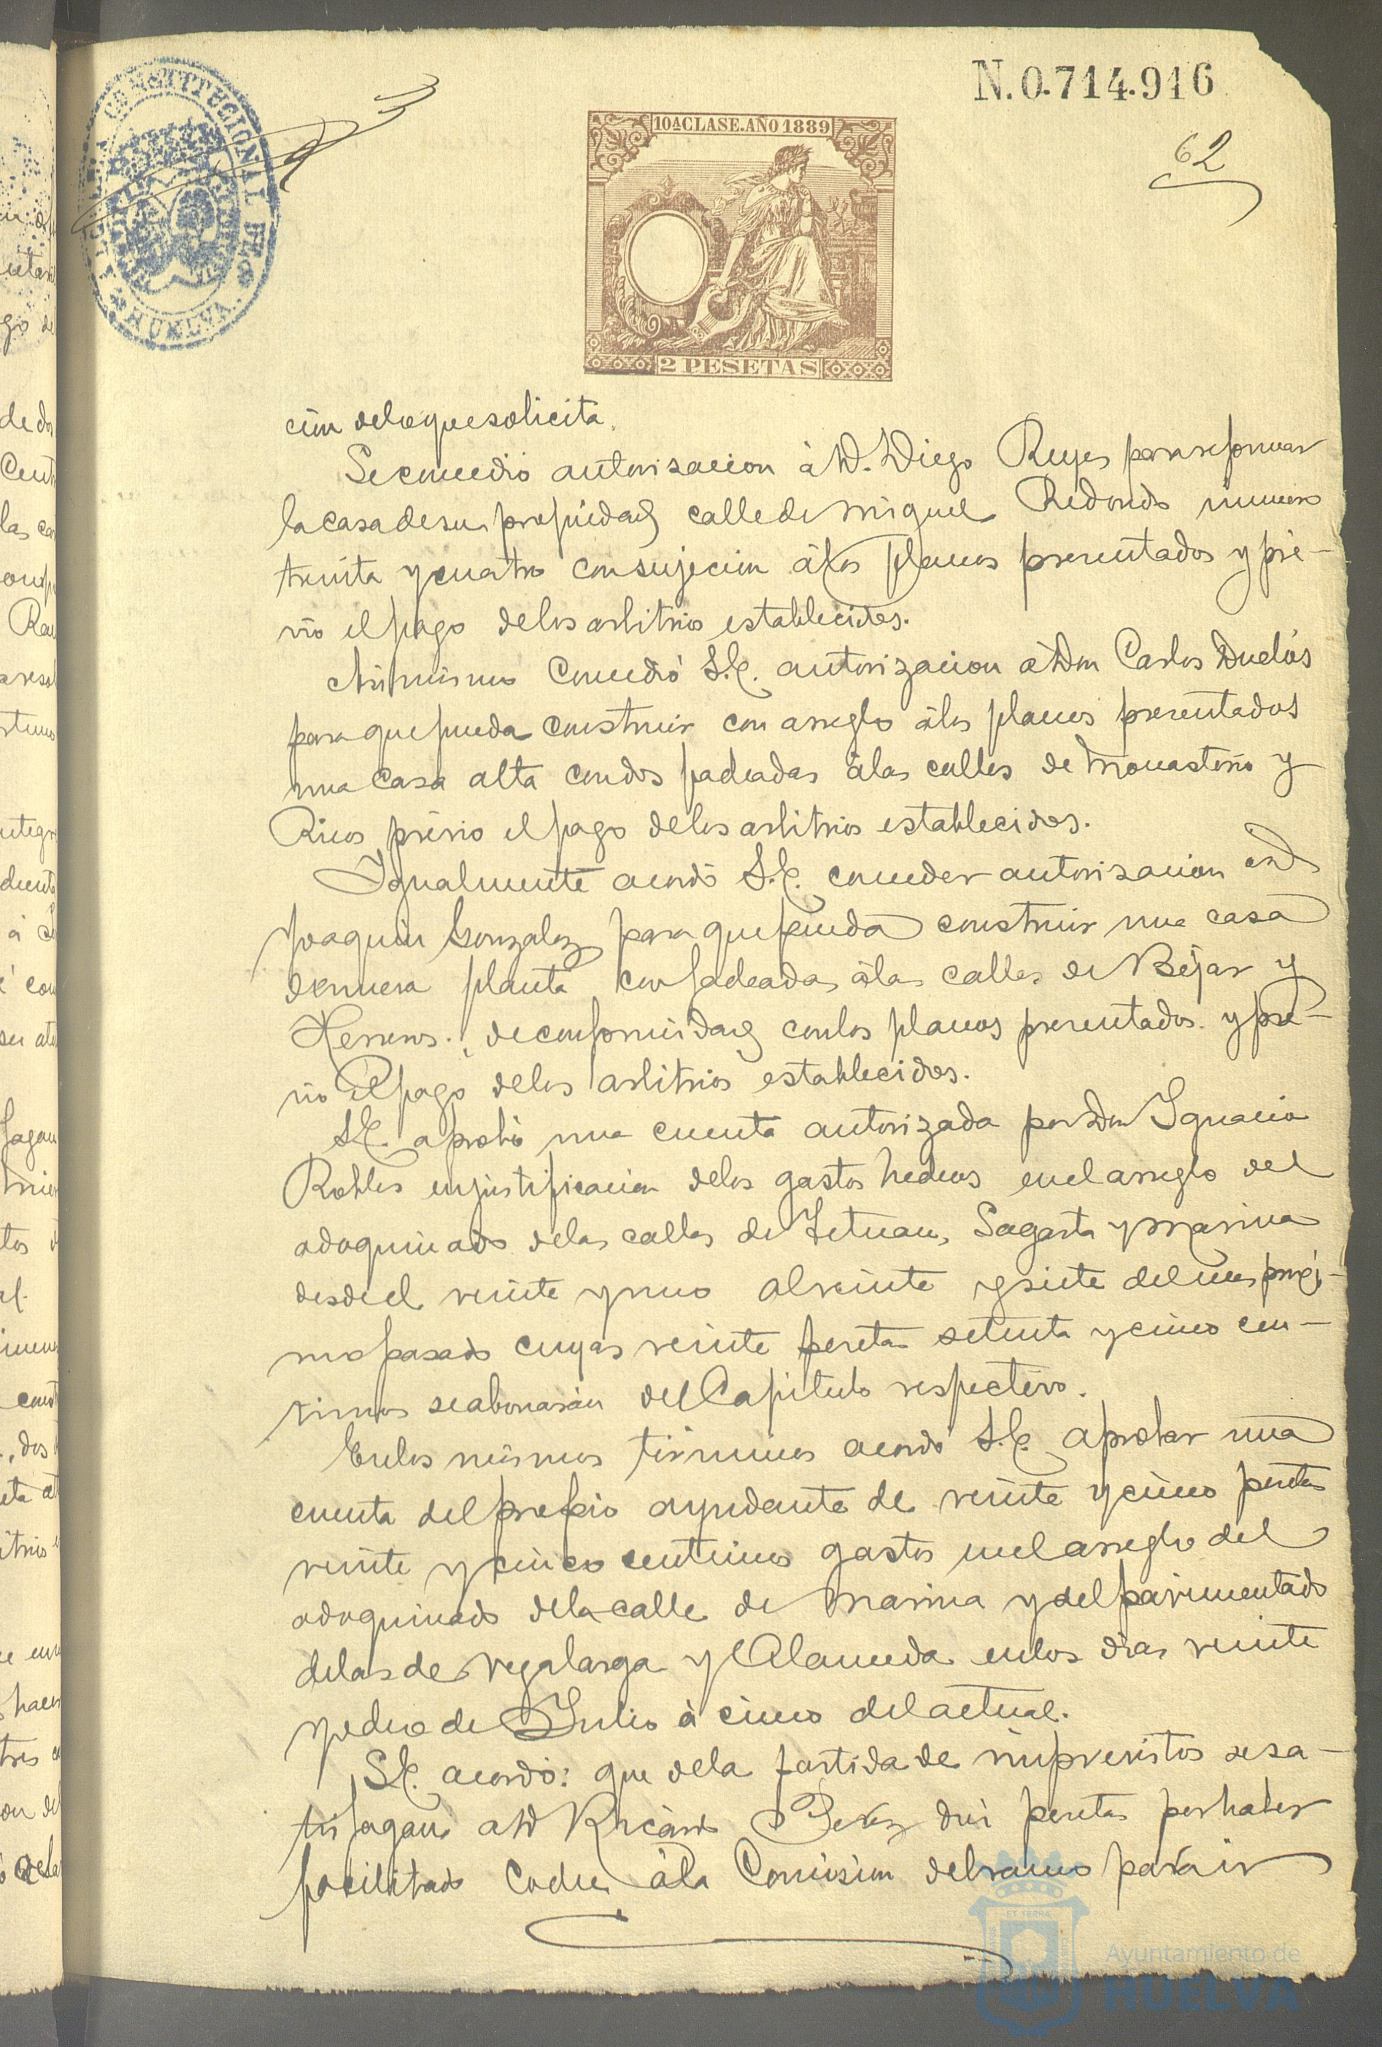 N. 0.714.916
62
10ª CLASE. AÑO 1889
2 PESETAS
CONSTITUCIONAL DE
HUELVA
cion de lo que solicita.
Se concedió autorizacion á D. Diego Reyes para reformar
la casa de su propiedad calle de Miguel Redondo número
treinta y cuatro con sujecion á los planos presentados y pré-
vio el pago de los arbitrios establecidos.
Asimismo concedió S.E. autorizacion á Don Carlos Duclós
para que pueda construir con arreglo á los planos presentados
una casa alta con dos fachadas á las calles de Monasterio y
Ricos prévio el pago de los arbitrios establecidos.
Igualmente acordó S.E. conceder autorizacion á D.
Joaquin Gonzalez para que pueda construir una casa
de nueva planta con fachadas á las calles de Béjar y
Herreros. de conformidad con los planos presentados y pré-
vio el pago de los arbitrios establecidos.
S.E. aprobó una cuenta autorizada por Don Ignacio
Robles en justificacion de los gastos hechos en el arreglo del
adoquinado de las calles de Tetuan, Sagasta y Marina
desde el veinte y uno al veinte y siete del mes próxi-
mo pasado cuyas veinte pesetas setenta y cinco cen-
timos se abonarán del Capitulo respectivo.
En los mismos términos acordó S.E. aprobar una
cuenta del propio ayudante de veinte y cinco pesetas
veinte y cinco centimos gastos en el arreglo del
adoquinado de la calle de Marina y del pavimentado
de las de Vegalarga y Alameda en los dias veinte
y ocho de Julio á cinco del actual.
S.E. acordó: que de la partida de imprevistos se sa-
tisfagan a D. Ricardo Perez diez pesetas por haber
facilitado coche á la Comision del ramo para ir
Ayuntamiento de
HUELVA